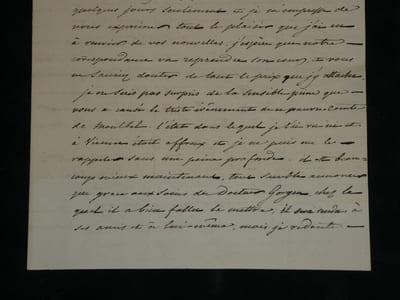 quelques jours seulement et je m'empresse de
vous exprimer tout le plaisir que j'ai eu
à ouvrir de vos nouvelles. j'espère que notre
correspondance va reprendre son cours, et vous
ne sauriez douter de tout le prix que j'y attache.
je ne suis pas surpris de la sensible peine que
vous a causée le triste événement de ce pauvre Comte
de Montbel. l'état dans lequel je l'ai vu
à Vienne était affreux et je ne puis me le
rappeler sans une peine profonde. il est beau-
coup mieux maintenant, tout semble annoncer
que grace aux soins du Docteur Gorgen chez le
quel il a bien fallu le mettre, il sera rendu à
ses amis et à lui-même, mais je redoute